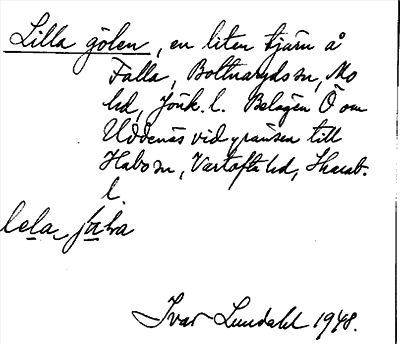 Lilla gölen, en liten tjärn å
Falla, Bottnaryds sn, Mo
hd, Jönk. l. Belägen Ö om
Uddenäs vid gränsen till
Habo sn, Vartofta hd, Skarab.
l.
lela
Ivar Lundahl 1948.